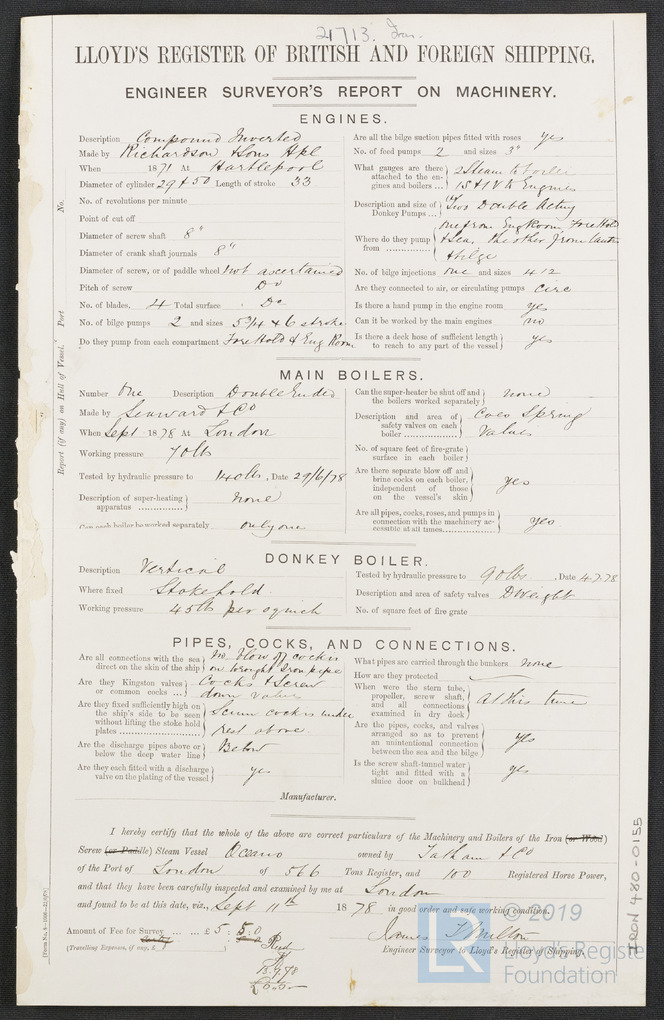 21713. Iron.
LLOYD'S REGISTER OF BRITISH AND FOREIGN SHIPPING.
ENGINEER SURVEYOR'S REPORT ON MACHINERY.
ENGINES.
Description Compound Inverted
Made by Richardson & Sons Hpl
When 1871 At Hartlepool
Diameter of cylinder 29 & 50 Length of stroke 33
No. of revolutions per minute
Point of cut off
Diameter of screw shaft 8"
Diameter of crank shaft journals 8"
Diameter of screw, or of paddle wheel not ascertained
Pitch of screw Do
No. of blades, 4 Total surface Do
No. of bilge pumps 2 and sizes 5 3/4 & 6 stroke
Do they pump from each compartment ForeHold & Eng Room
Are all the bilge suction pipes fitted with roses yes
No. of feed pumps 2 and sizes 3"
What gauges are there attached to the engines and boilers ... 2 Steam to boiler
1 S & 1 V to Engines
Description and size of Donkey Pumps ... Two Double Acting
Where do they pump from ... one from Eng Room, ForeHold
& Sea, the other from
& bilge
No. of bilge injections one and sizes 4 1/2
Are they connected to air, or circulating pumps circ
Is there a hand pump in the engine room yes
Can it be worked by the main engines no
Is there a deck hose of sufficient length to reach to any part of the vessel yes
MAIN BOILERS.
Number One Description Double Ended
Made by Seaward & Co
When Sept 1878 At London
Working pressure 70 lbs
Tested by hydraulic pressure to 140 lbs, Date 29/6/78
Description of super-heating apparatus ... none
Can each boiler be worked separately only one
Can the super-heater be shut off and the boilers worked separately none
Description and area of safety valves on each boiler ... Spring
Valves
No. of square feet of fire-grate surface in each boiler
Are there separate blow off and brine cocks on each boiler, independent of those on the vessel's skin yes
Are all pipes, cocks, roses, and pumps in connection with the machinery accessible at all times yes
DONKEY BOILER.
Description Vertical
Where fixed Stokehold
Working pressure 45 lbs per sq inch
Tested by hydraulic pressure to 90 lbs, Date 4.7.78
Description and area of safety valves D Weight
No. of square feet of fire grate
PIPES, COCKS, AND CONNECTIONS.
Are all connections with the sea direct on the skin of the ship no Blow off cock is
on wrought Iron pipe
Are they Kingston valves or common cocks ... Cocks & Screw
down valves
Are they fixed sufficiently high on the ship's side to be seen without lifting the stoke hold plates ... cock is under
rest above
Are the discharge pipes above or below the deep water line Below
Are they each fitted with a discharge valve on the plating of the vessel yes
What pipes are carried through the bunkers none
How are they protected
When were the stern tube, propeller, screw shaft, and all connections examined in dry dock At this time
Are the pipes, cocks, and valves arranged so as to prevent an unintentional connection between the sea and the bilge yes
Is the screw shaft-tunnel water tight and fitted with a sluice door on bulkhead yes
Manufacturer.
I hereby certify that the whole of the above are correct particulars of the Machinery and Boilers of the Iron (or Wood)
Screw (or Paddle) Steam Vessel Oceano owned by Tatham & Co
of the Port of London of 566 Tons Register, and 100 Registered Horse Power,
and that they have been carefully inspected and examined by me at London
and found to be at this date, viz., Sept 11th 1878 in good order and safe working condition.
Amount of Fee for Survey ... £5 : 5.0
(Travelling Expenses, if any, £ )
18.9.78
James T Milton
Engineer Surveyor to Lloyd's Register of Shipping.
No. Port
Report (if any) on Hull of Vessel.
IRON 480-0155
©2019
Lloyd's Register
Foundation
LR